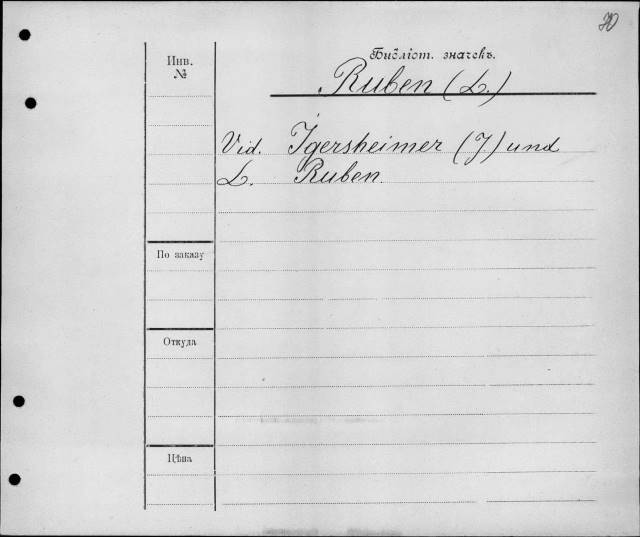 70
Инв.
№
Библіот. значекъ.
Ruben (L.)
Vid. Igersheimer (J) und
L. Ruben.
По заказу
Откуда
Цѣна